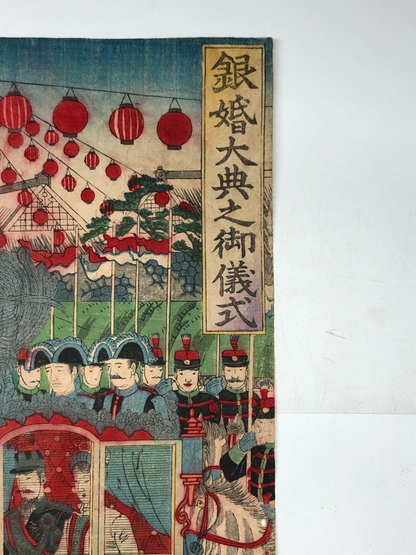 銀婚大典之御儀式